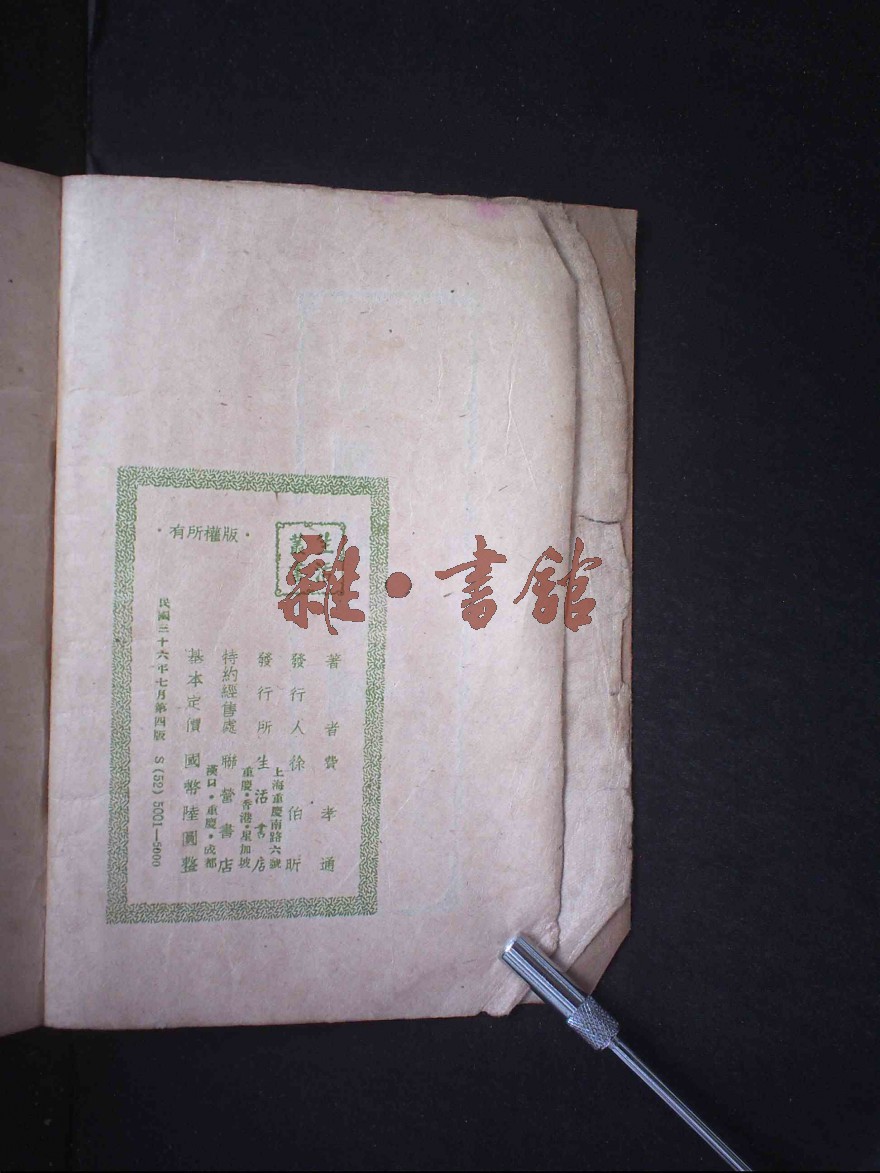 著者費孝通
發行人徐伯昕
發行所生活書店
上海重慶南路六號
重慶•香港•星加坡
特約經售處聯營書店
漢口•重慶•成都
基本定價國幣陸圓整
民國三十六年七月第四版 S (52) 5001—5000
•版權所有•
雜•書館